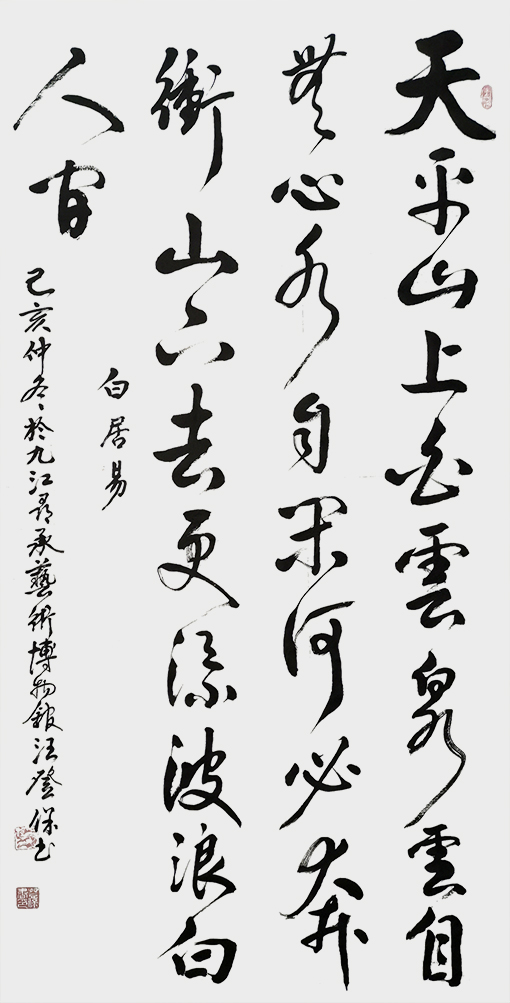 天平山上白雲泉雲自
無心水自閑何必奔
衝山下去更添波浪向
人間
白居易
己亥仲冬於九江尋承藝術博物館汪登保書